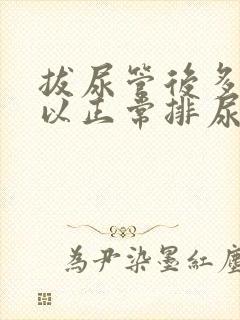 拔尿管後多
以正常排尿
為尹染墨紅塵